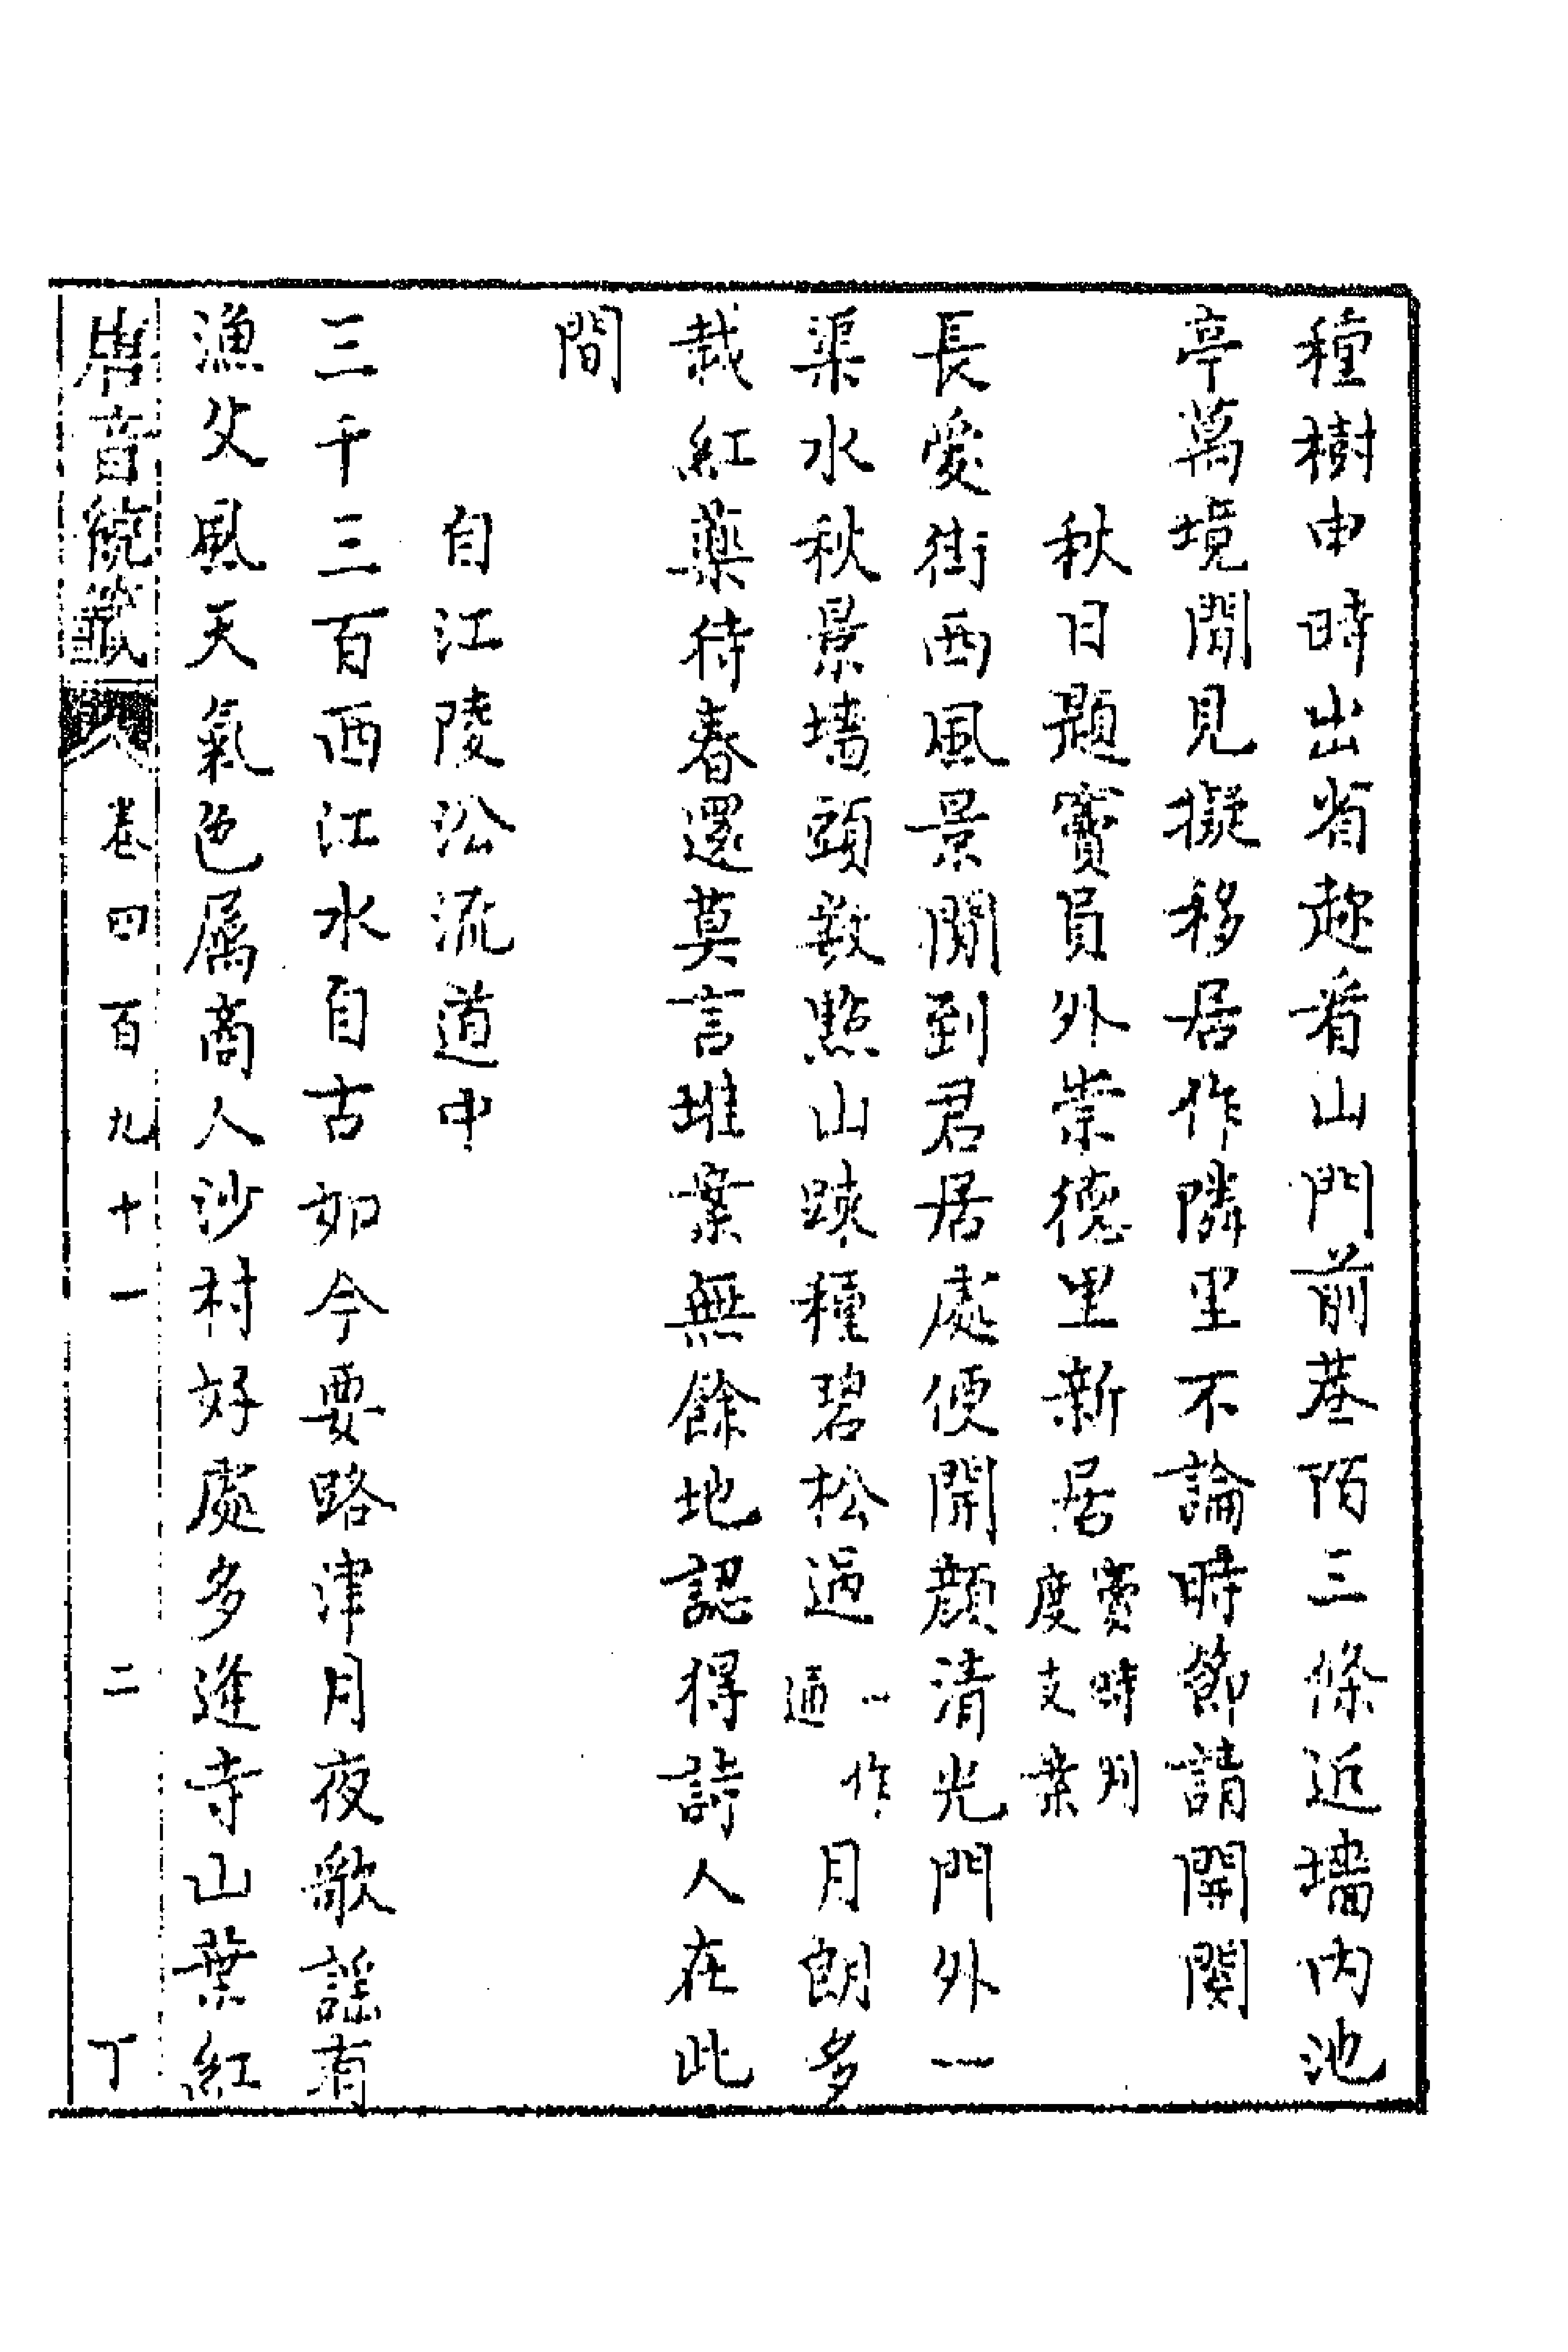 種樹申時出省趂看山門前巷陌三條近墻内池
亭萬境閒見擬移居作隣里不論時節請開関
秋日題竇員外崇德里新居竇時判度支案
長愛街西風景閒到君居處便開顔清光門外一
渠水秋景墻頭數點山踈種碧松過一作通月朗多
栽紅藥待春還莫言堆案無餘地認得詩人在此
間
自江陵㳂流道中
三千三百西江水自古如今要路津月夜歌謡有
漁父風天氣色屬商人沙村好處多逢寺山葉紅
唐音統籖 卷四百九十一 二 丁